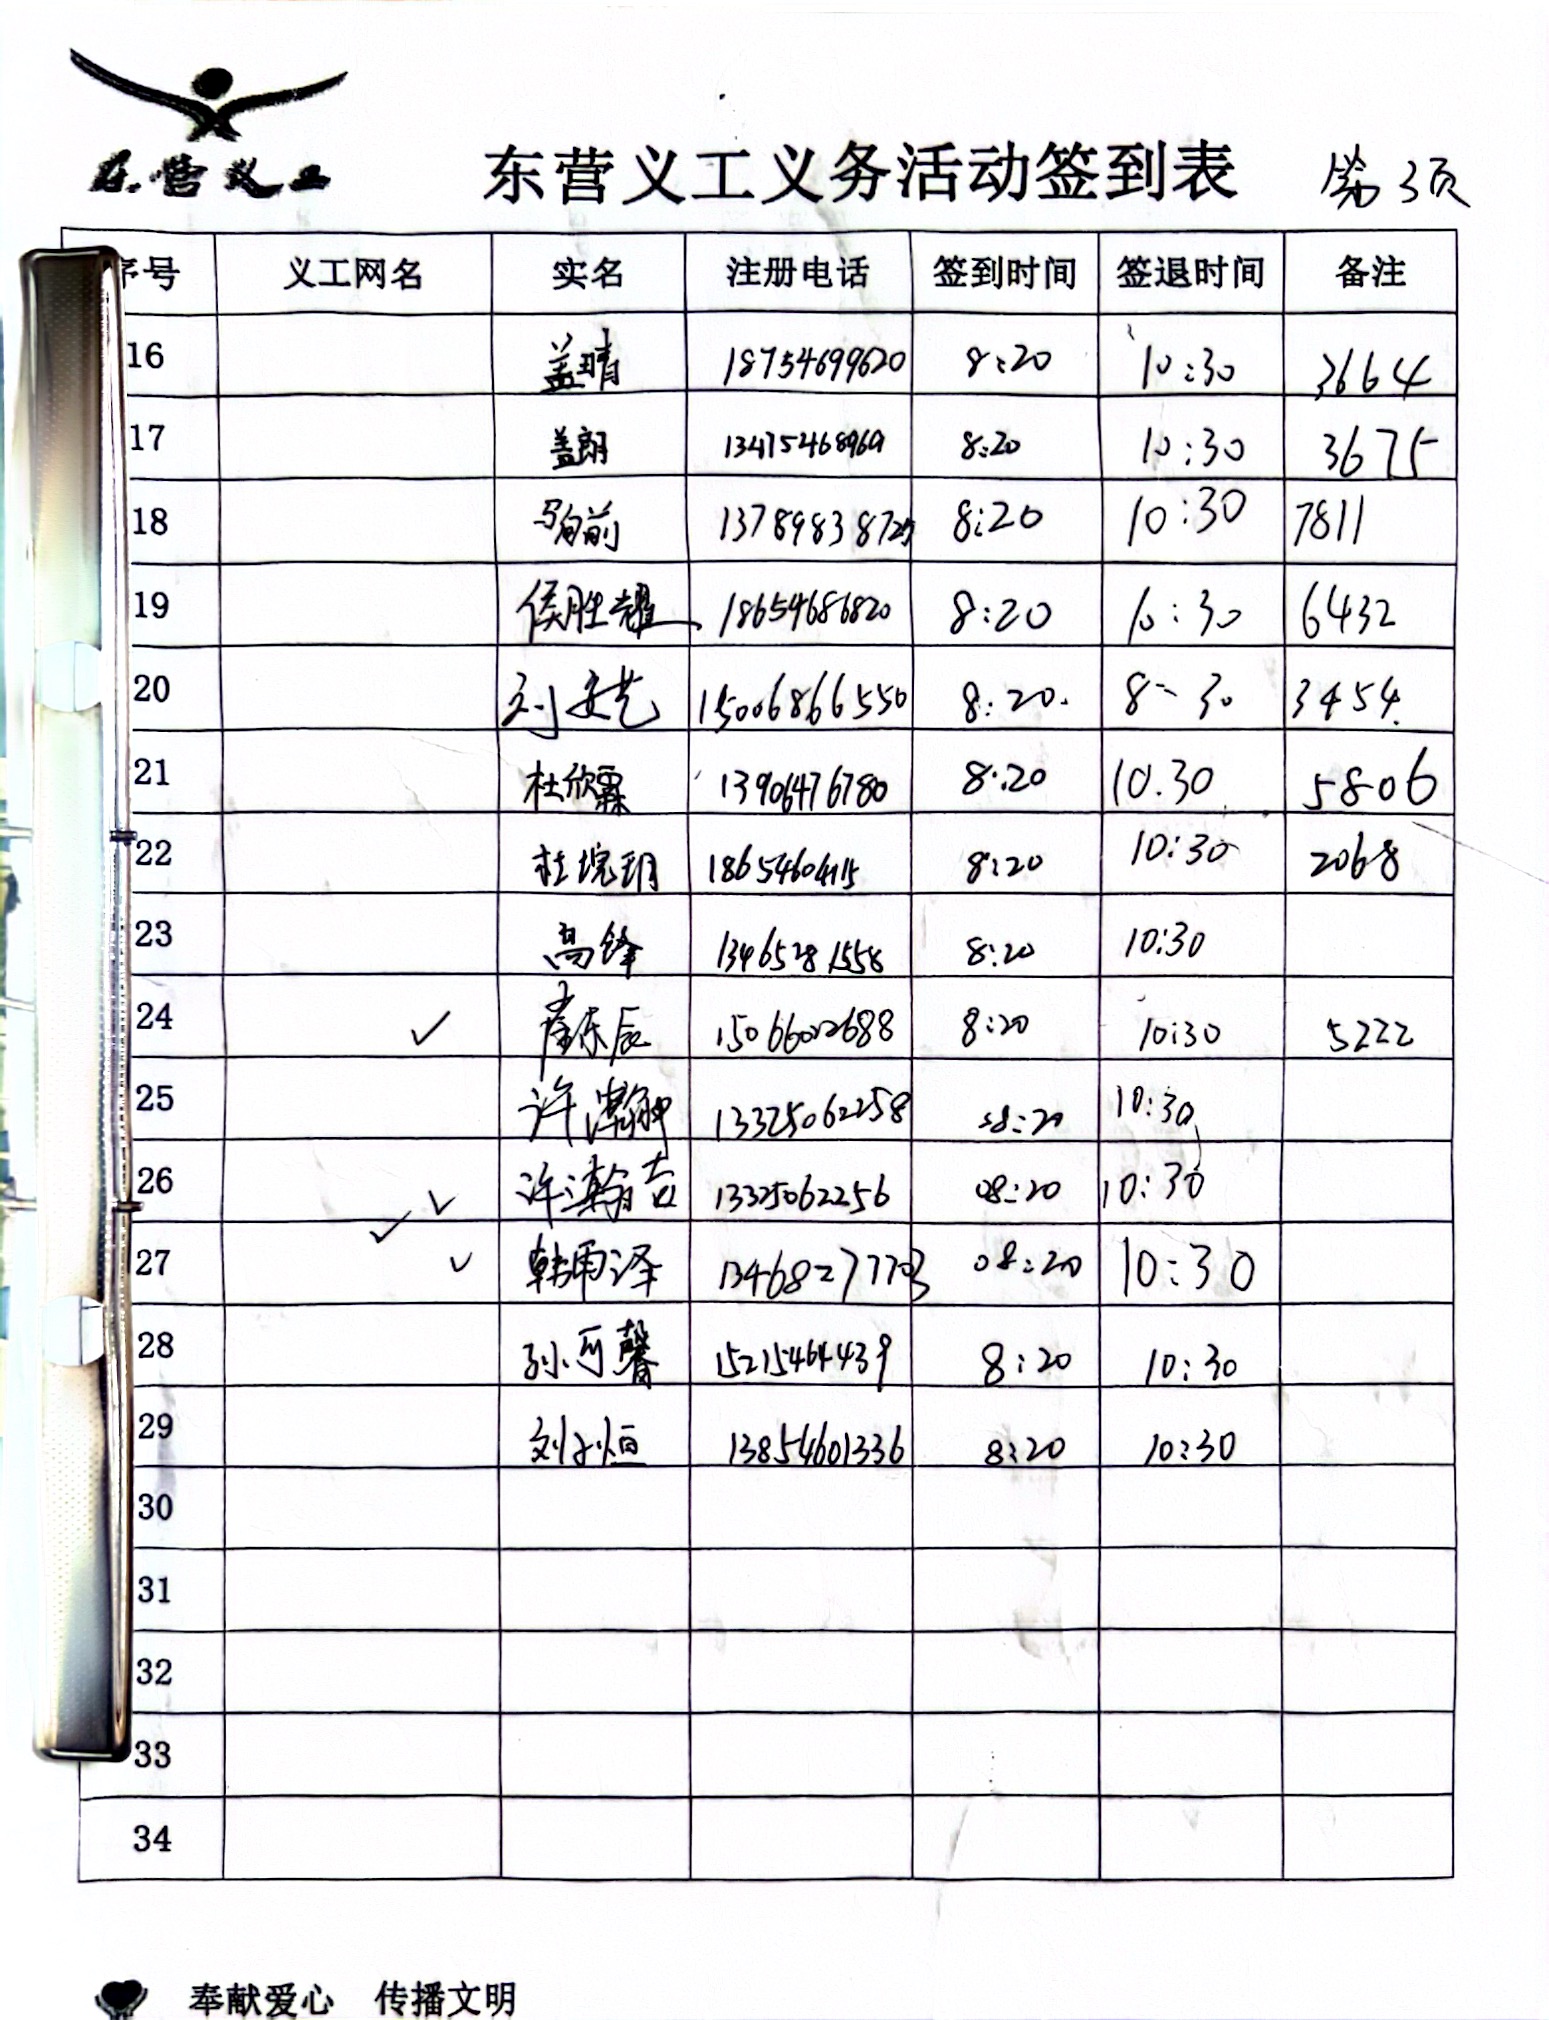 东营义工
东营义工义务活动签到表 第3页
序号 义工网名 实名 注册电话 签到时间 签退时间 备注
16 盖晴 18754699620 8:20 10:30 3664
17 盖朗 13475468969 8:20 10:30 3675
18 13789838725 8:20 10:30 7811
19 侯胜耀 18654686820 8:20 10:30 6432
20 刘安艺 15006866550 8:20. 8-30 3454.
21 杜欣霖 13906476780 8:20 10.30 5806
22 8:20 10:30 2068
23 高锋 13465281558 8:20 10:30
24 ✓ 崔东辰 15066022688 8:20 10:30 5222
25 许瀚翀 13325062258 08:20 10:30
26 ✓ 许瀚吉 13325062256 08:20 10:30
27 ✓ ✓ 韩雨泽 08:20 10:30
28 孙可馨 15215464439 8:20 10:30
29 刘子恒 13854601336 8:20 10:30
30
31
32
33
34
奉献爱心 传播文明